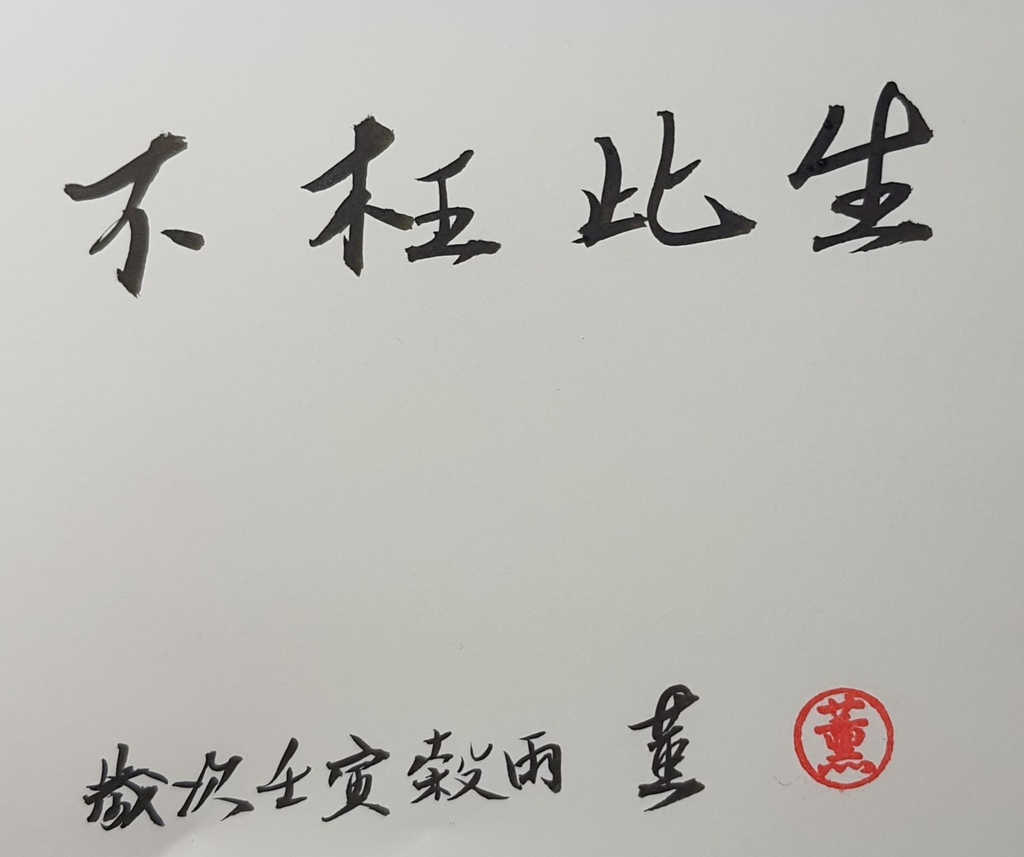 不枉此生
歲次壬寅穀雨 薰 薰